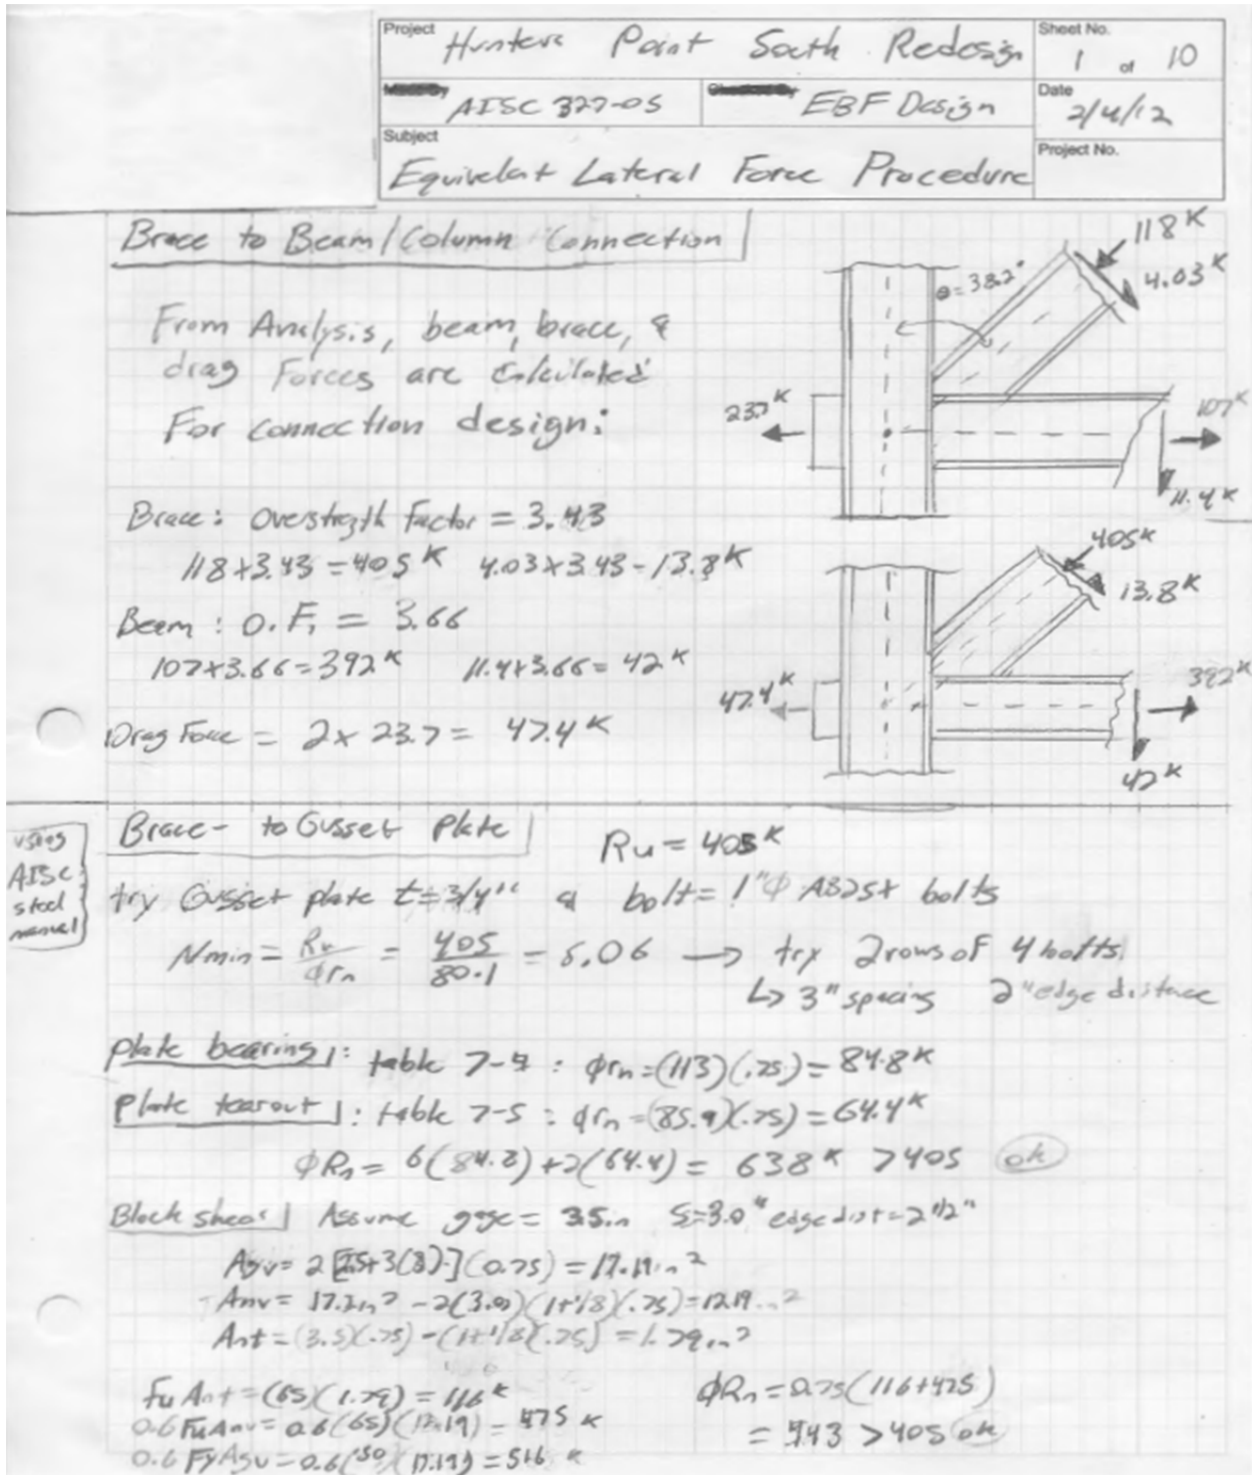 Project Hunters Point South Redesign
Sheet No. 1 of 10
AISC 327-05
EBF Design
Date 2/4/12
Subject
Equivelent Lateral Force Procedure
Project No.
Brace to Beam/Column Connection
From Analysis, beam, brace, &
drag Forces are Calculated
For connection design:
θ=38.2°
118 K
4.03 K
23.7 K
107 K
11.4 K
Brace: Overstrength Factor = 3.43
118×3.43=405 K 4.03×3.43=13.8 K
Beam: O.F. = 3.66
107×3.66=392 K 11.4×3.66=42 K
Drag Force = 2×23.7= 47.4 K
405 K
13.8 K
47.4 K
392 K
42 K
using
AISC
steel
manual
Brace- to Gusset Plate
Ru = 405 K
try Gusset plate t=3/4" & bolt= 1"φ A325X bolts
Nmin = Ru/φrn = 405/80.1 = 5.06 → try 2 rows of 4 bolts
↳ 3" spacing 2" edge distance
plate bearing: table 7-4: φrn=(113)(.75)=84.8 K
Plate tearout: table 7-5: φrn=(85.9)(.75)=64.4 K
φRn= 6(84.8)+2(64.4)= 638 K >405 ok
Block shear Assume gage= 3.5in S=3.0" edge dist=2 1/2"
Agv= 2 (0.75)=17.19in²
Anv= 17.2in² -2(3.5)(1+1/8)(.75)=12.19in²
Ant=(3.5)(.75)-(1+1/8)(.75)=1.79in²
Fu Ant=(65)(1.79)=116 K
0.6FuAnv=0.6(65)(12.19)=475 K
0.6FyAgv=0.6(50)(17.19)=516 K
φRn=0.75(116+475)
=443 >405 ok